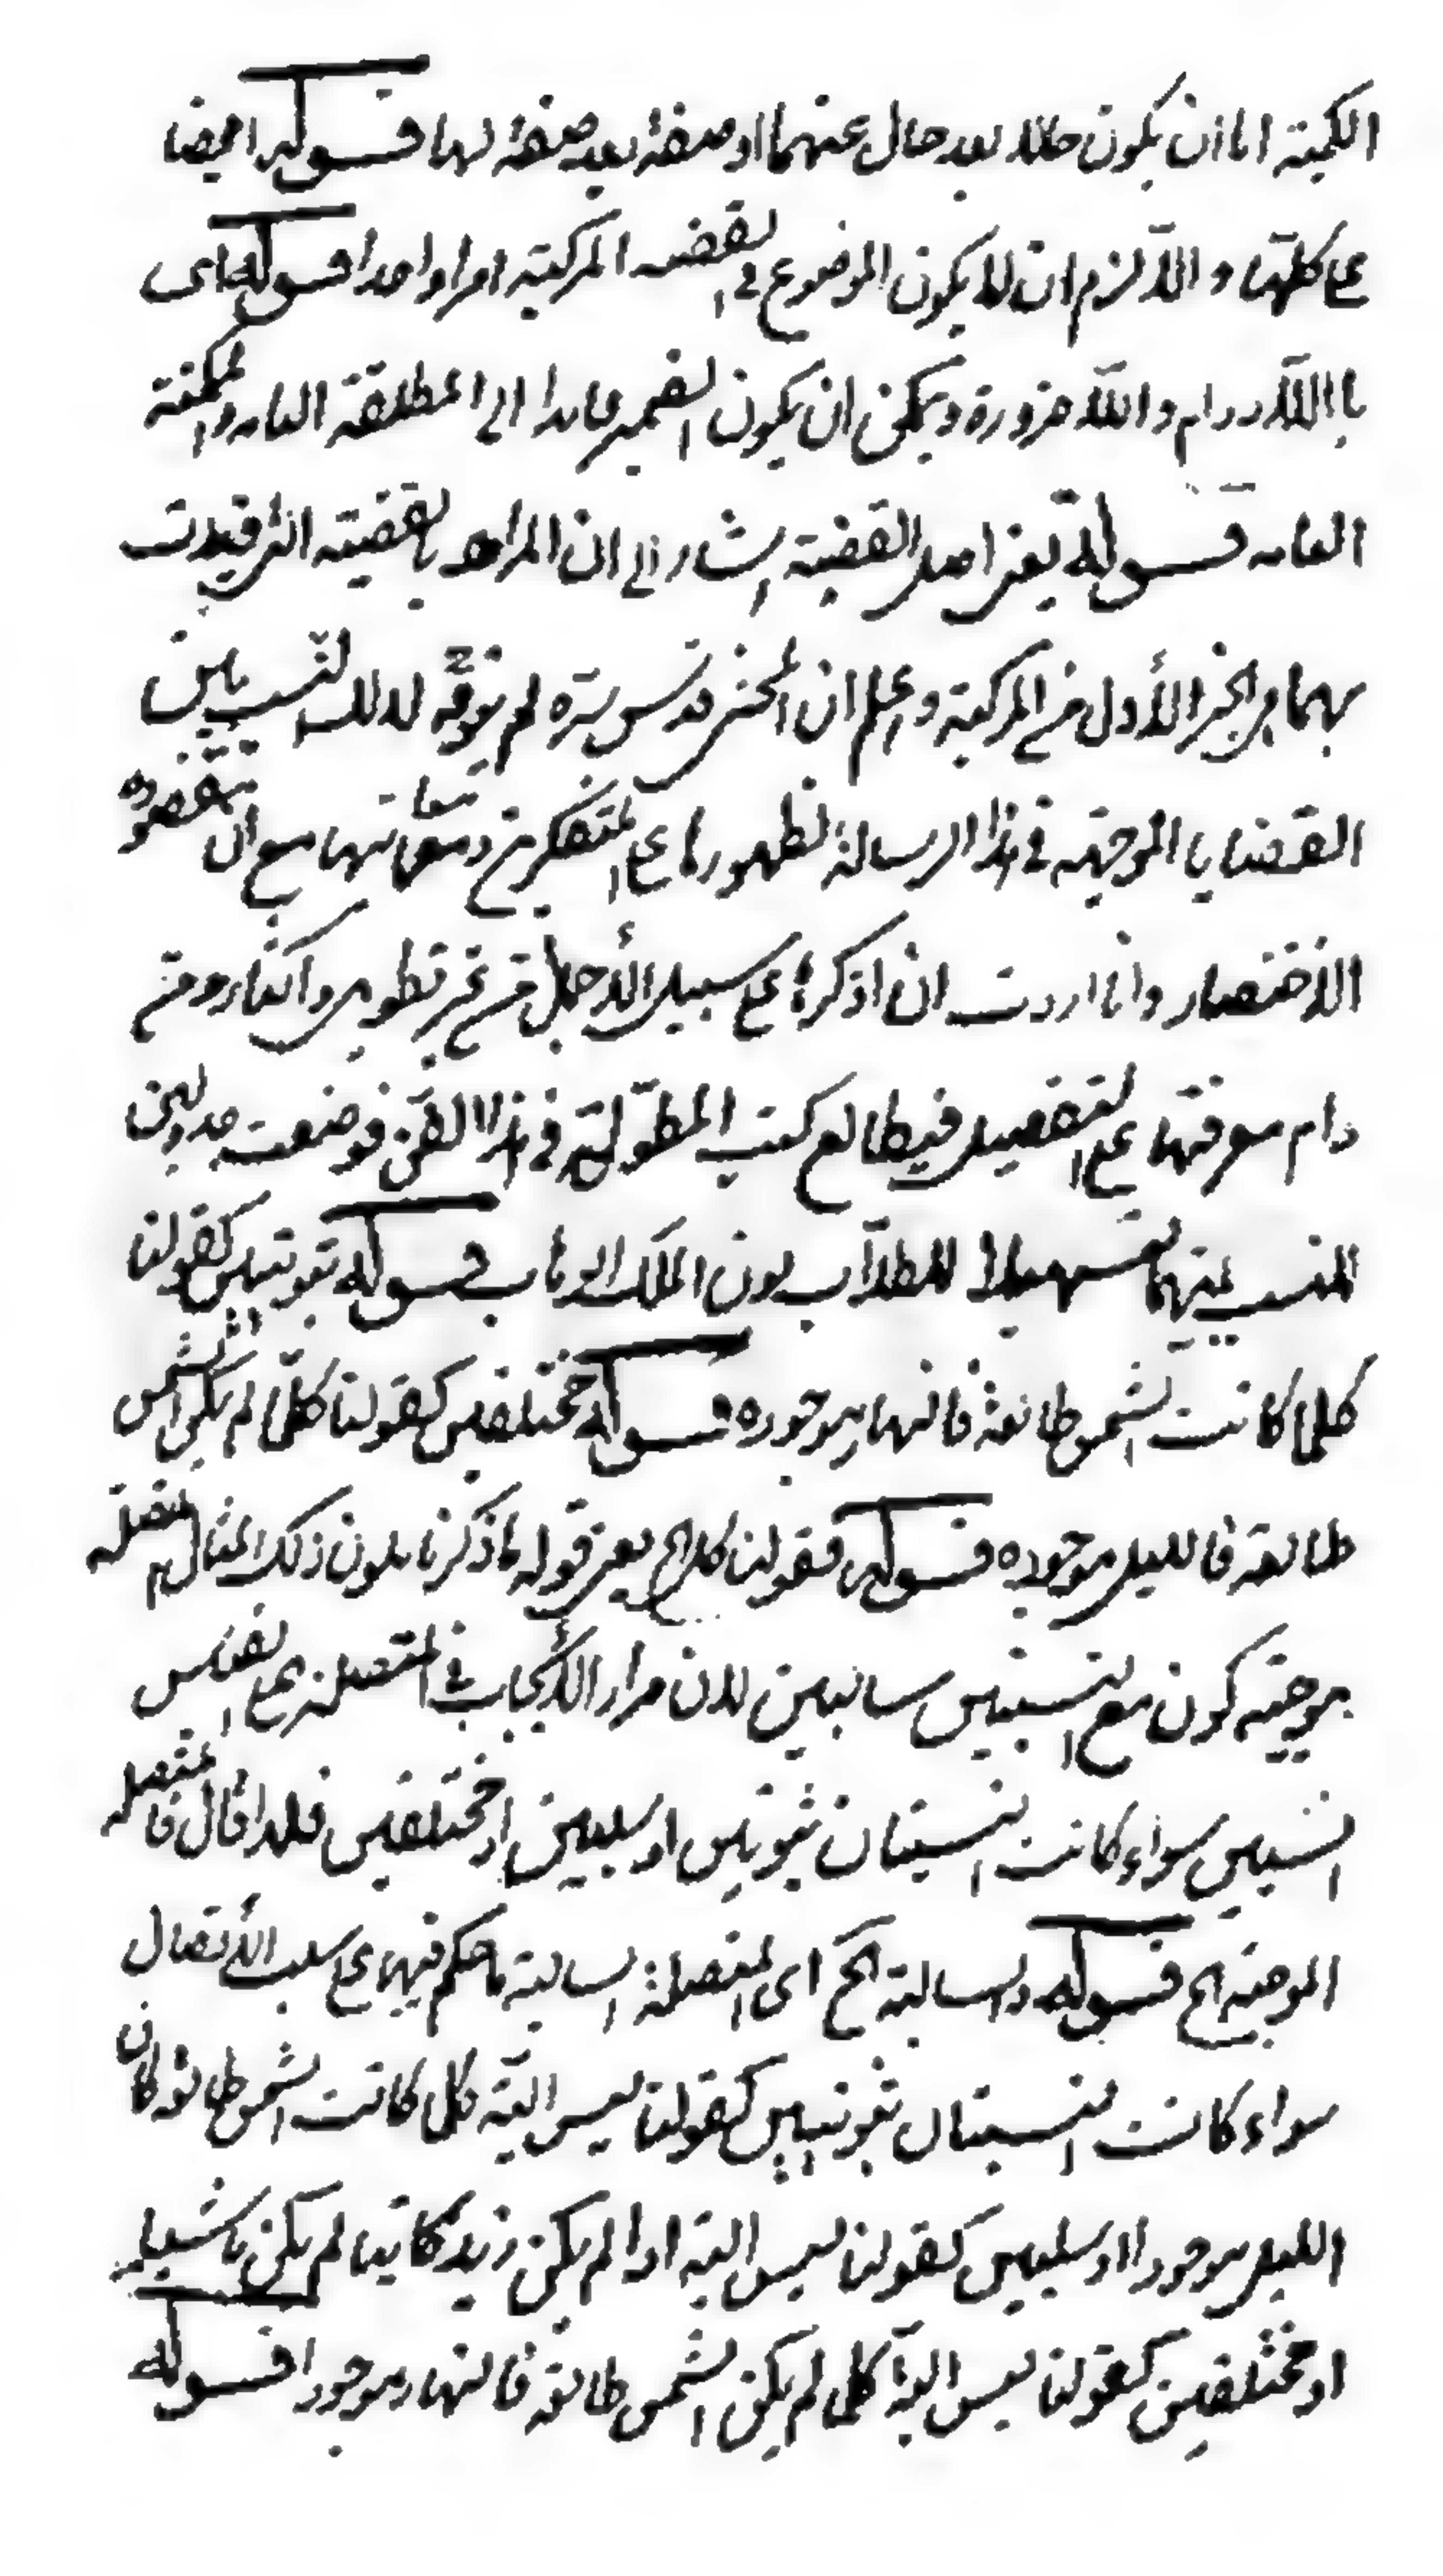 الكمية اما ان يكون حالا بعد حال عنهما او صفة بعد صفة لهما قوله ايضا
على كليهما والا لزم ان لا يكون الموضوع في القضية المركبة امرا واحدا قوله اى
باللادوام واللاضرورة ويمكن ان يكون الضمير عايدا الى المطلقة العامه والممكنة
العامه قوله يعنى اصل القضية اشار الى ان المراد بالقضيته التى قيدت
بهما هى الجزء الأول من المركبة واعلم ان المحشى قدس سره لم يتوجه لذلك النسب بين
القضايا الموجهه في هذا الرسالة لظهورها على المتفكر من تعريفاتها مع ان مقصوده
الاختصار وانا اردت ان اذكرها على سبيل الأجمال من غير تطويل واكثار ومن
رام معرفتها على التفصيل فيطالع كتب المطولة في هذا الفن فوضعت جدولين
للنسب بينهما تسهيلا للطلاب بعون الملك الوهاب قوله ثبوتيتين كقولنا
كلما كانت الشمس طالعة فالنهار موجوده قوله مختلفين كقولنا كلما لم يكن الشمس
طالعة فالليل موجوده قوله فقولنا كلما الخ يعنى قوله لما ذكرنا يكون ذلك المثال متصلة
موجبة كون مع النسبتين سالبتين لان مدار الأيجاب في المتصلة على اتصال
النسبتين سواء كانت النسبتان ثبوتيتين او سلبيتين او مختلفين فلهذا قال فالمتصلة
الموجبة الخ قوله والسالبة الخ اى المتصلة السالبة ما حكم فيها على سلب الأتصال
سواء كانت النسبتان ثبوتيتين كقولنا ليس البتة كلما كانت الشمس طالعة كان
الليل موجودا او سلبيتين كقولنا ليس البتة اذا لم يكن زيد كاتبا لم يكن ماشيا
او مختلفين كقولنا ليس البتة كلما لم يكن الشمس طالعة فالنهار موجودا قوله